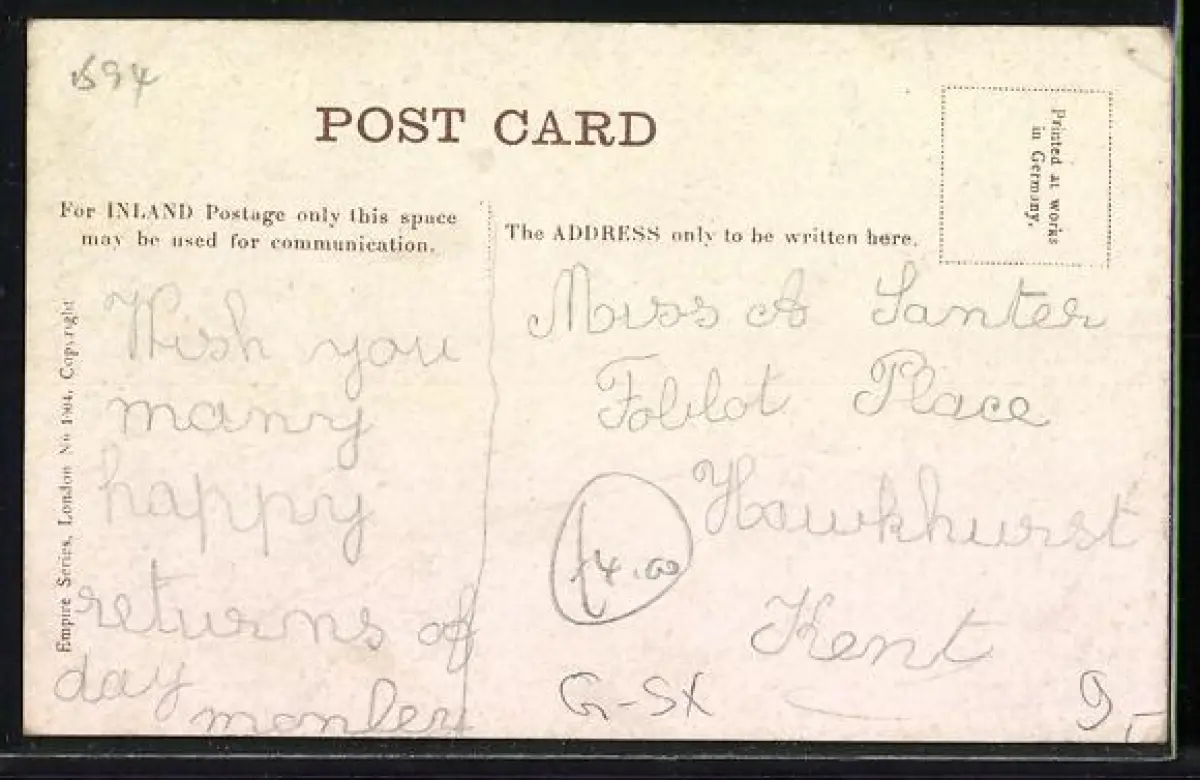 594
POST CARD
Printed at works
in Germany.
For INLAND Postage only this space
may be used for communication.
The ADDRESS only to be written here.
Empire Series, London No 1904, Copyright
Wish you
many
happy
returns of
day
Miss A Santer
Place
Hawkhurst
Kent
£4.00
G-SX
9,-